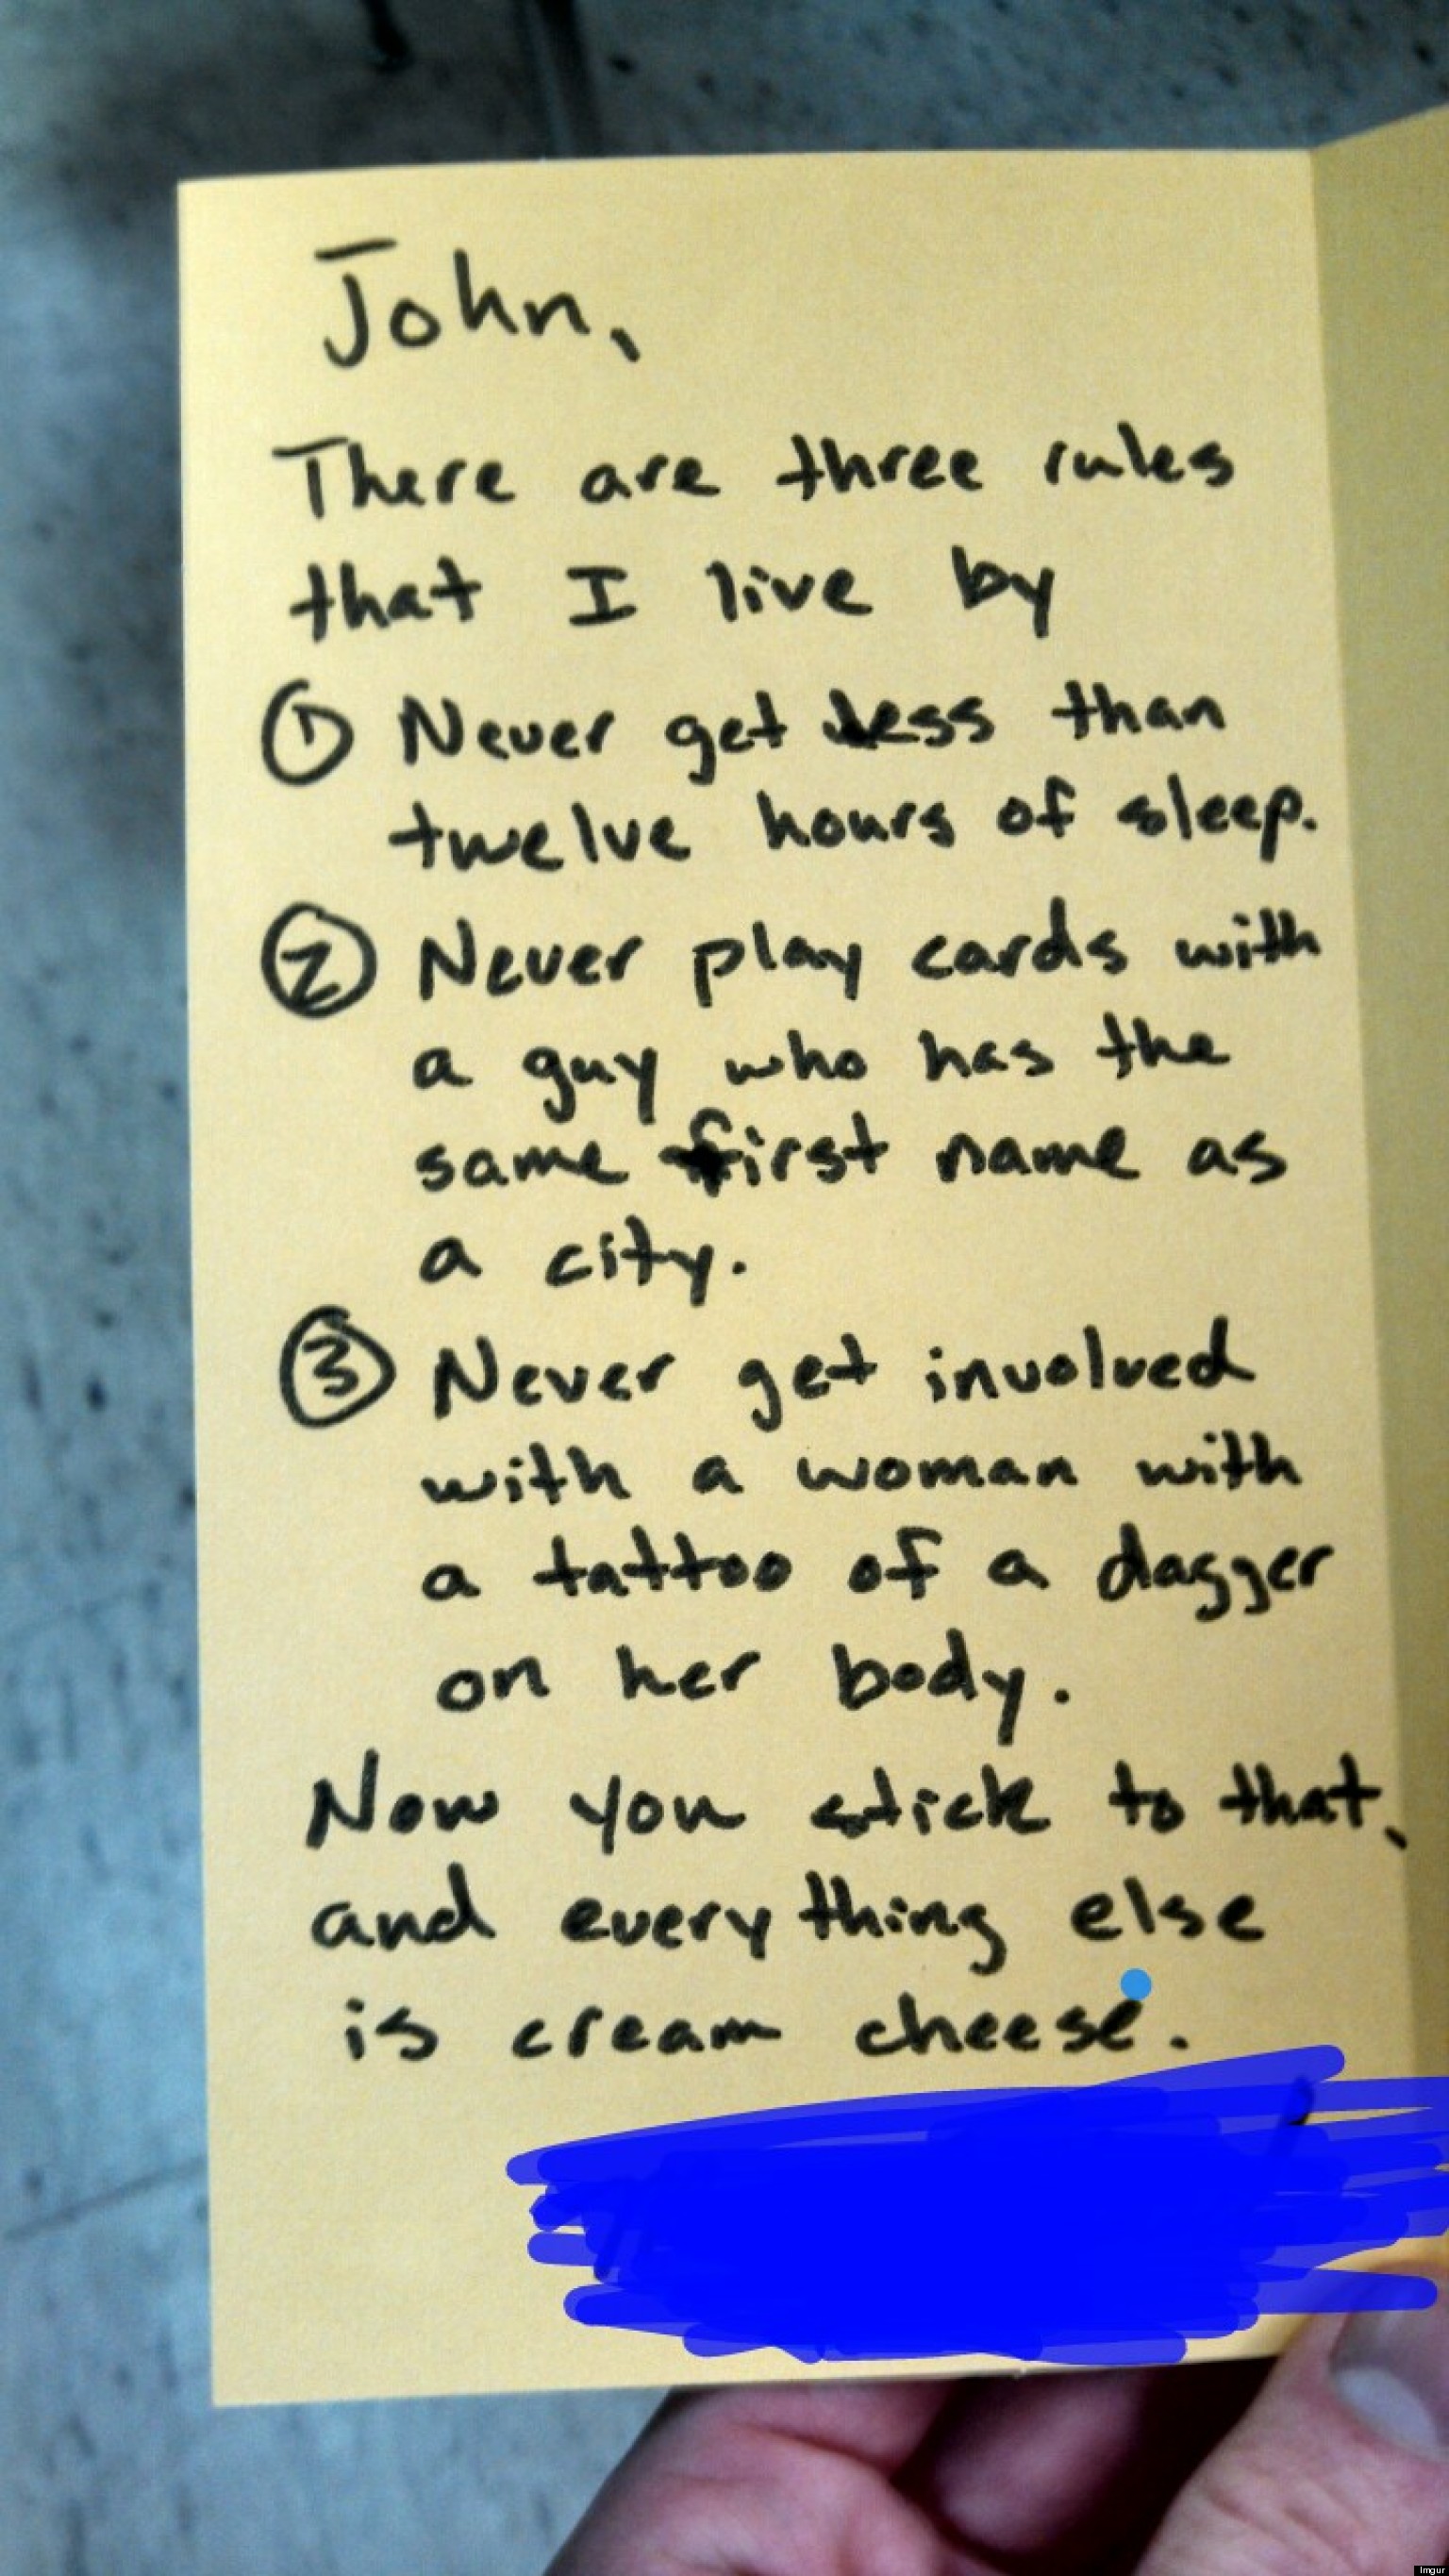 John,
There are three rules
that I live by
① Never get less than
twelve hours of sleep.
② Never play cards with
a guy who has the
same first name as
a city.
③ Never get involved
with a woman with
a tattoo of a dagger
on her body.
Now you stick to that,
and everything else
is cream cheese.
Imgur